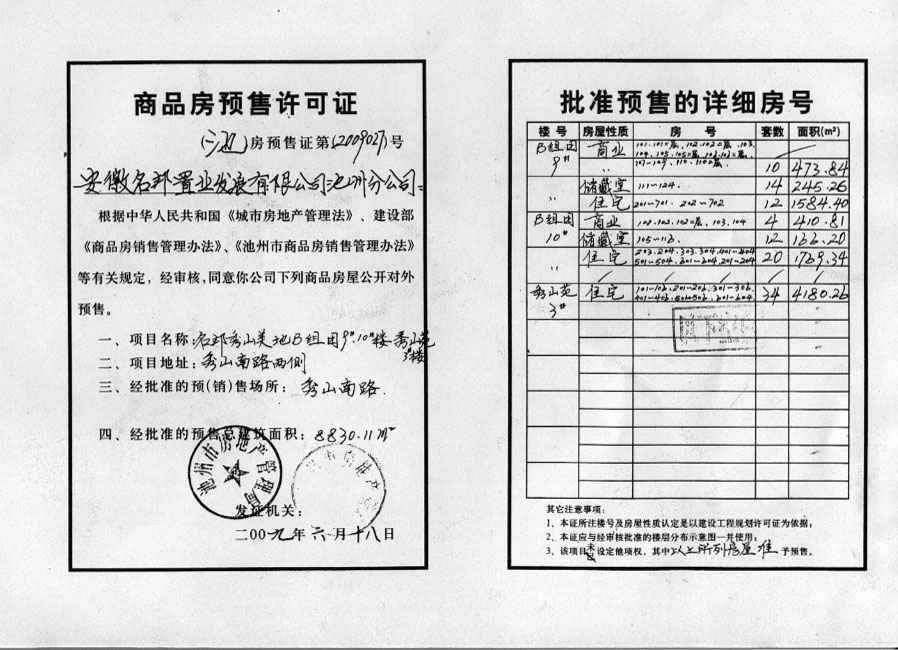 商品房预售许可证
(池)房预售证第(2009027)号
安徽名邦置业发展有限公司池州分公司:
根据中华人民共和国《城市房地产管理法》、建设部
《商品房销售管理办法》、《池州市商品房销售管理办法》
等有关规定，经审核，同意你公司下列商品房屋公开对外
预售。
一、项目名称:名邦秀山美地B组团9#.10#楼 秀山苑
3#楼
二、项目地址:秀山南路西侧
三、经批准的预(销)售场所:秀山南路.
四、经批准的预售总建筑面积:8830.11m²
池州市房地产管理局
发证机关:
二00九年六月十八日
批准预售的详细房号
楼号 房屋性质 房号 套数 面积(m²)
B组团 商业
9# 〃 10 473.84
储藏室 111~124. 14 245.26
住宅 201~701. 202~702 12 1584.40
B组团 商业 102.102=层,103.104 4 410.81
10# 储藏室 105~116. 12 133.20
住宅 20 1739.34
〃
秀山苑 住宅 34 4180.26
3#
其它注意事项:
1、本证所注楼号及房屋性质认定是以建设工程规划许可证为依据;
2、本证应与经审核批准的楼层分布示意图一并使用;
3、该项目未设定他项权，其中以上所列房屋准予预售。